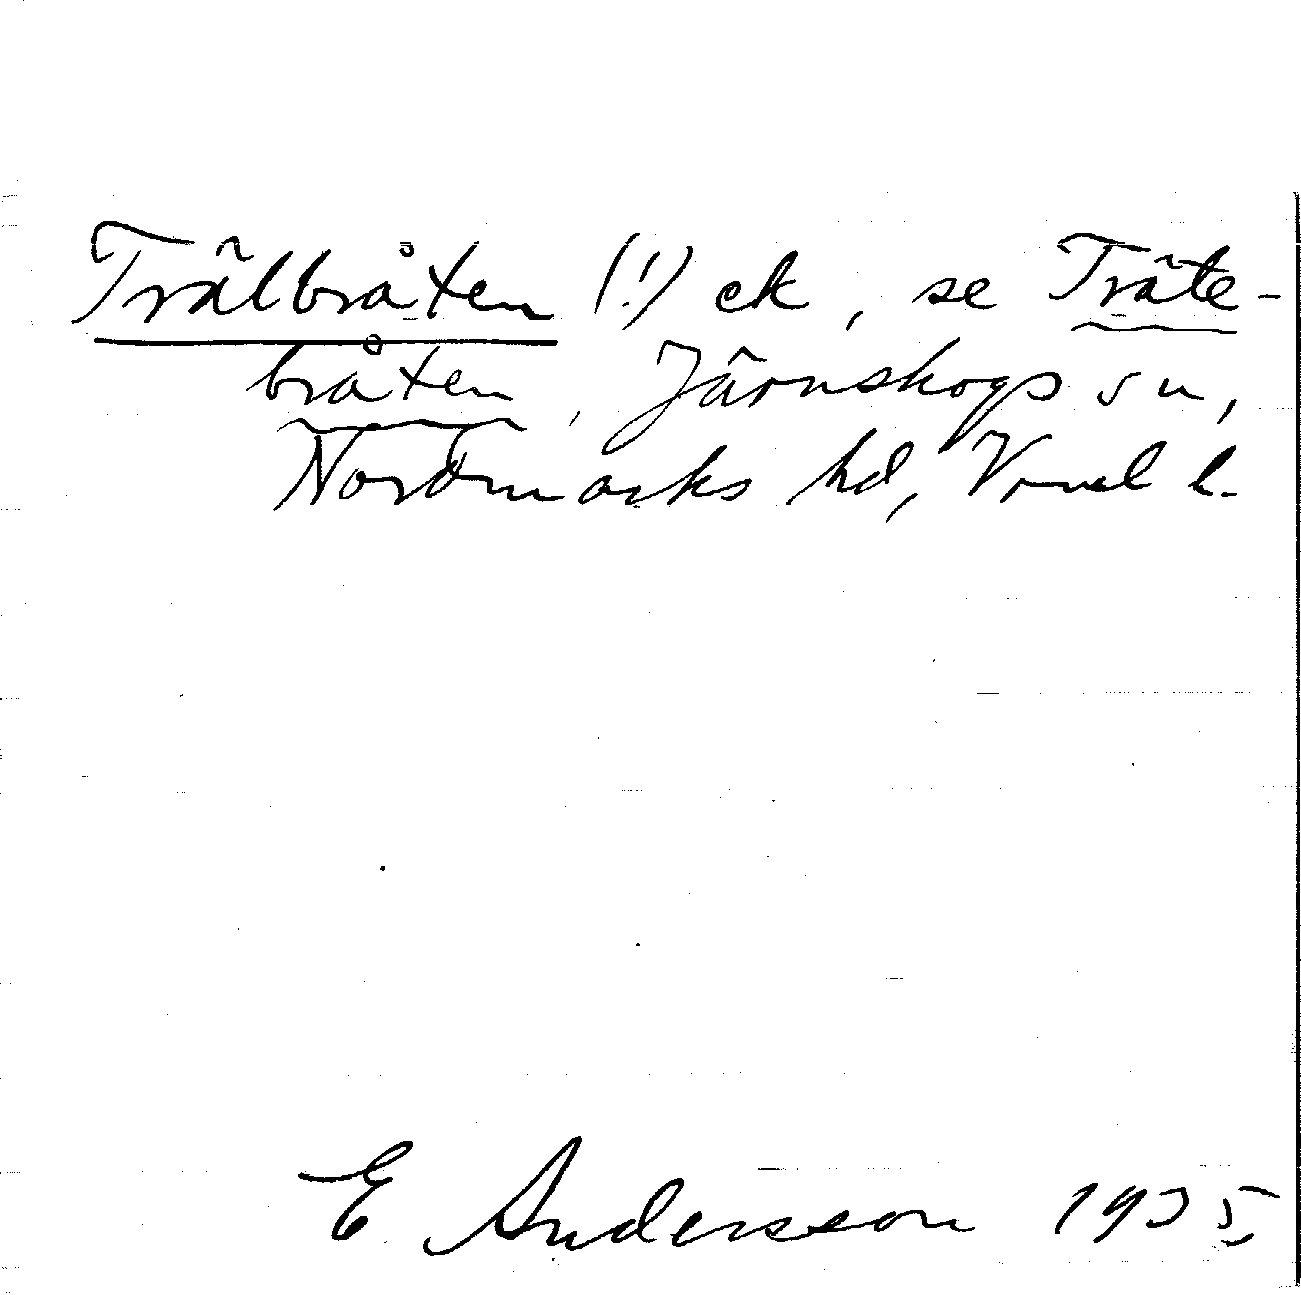 Trälbråten (!) ek, se Träte-
bråten, Järnskogs sn,
Nordmarks hd, Vrml l.
E Andersson 1935